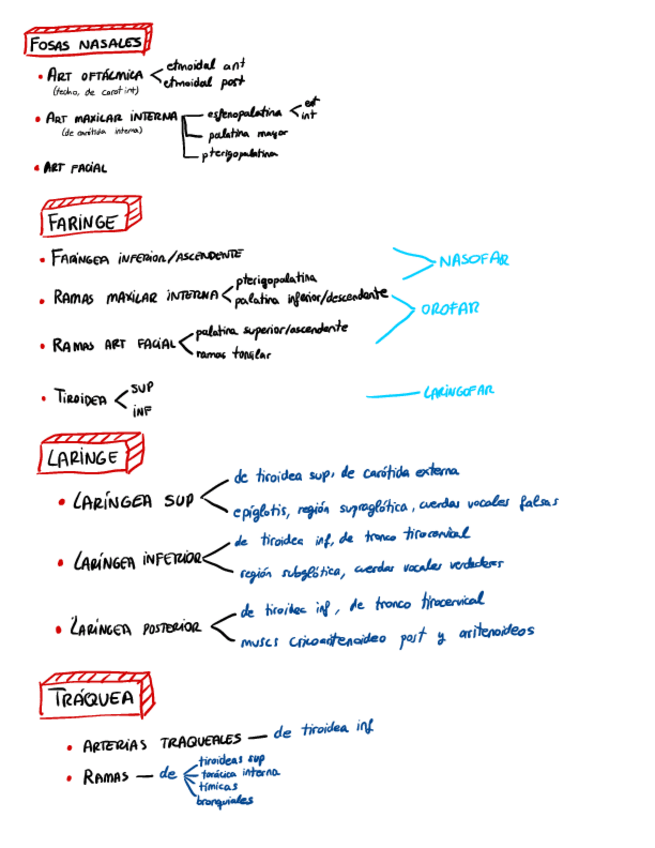 FOSAS NASALES
• ART OFTÁLMICA < etmoidal ant
etmoidal post
(techo, de carot int)
• ART MAXILAR INTERNA esfenopalatina < ext
int
(de carótida interna)
palatina mayor
pterigopalatina
• ART FACIAL
FARINGE
• FARÍNGEA INFERIOR/ASCENDENTE
NASOFAR
• RAMAS MAXILAR INTERNA < pterigopalatina
palatina inferior/descendente
OROFAR
• RAMAS ART FACIAL < palatina superior/ascendente
ramas tonsilar
• TIROIDEA < SUP
INF
LARINGOFAR
LARINGE
• LARÍNGEA SUP < de tiroidea sup, de carótida externa
epíglotis, región supraglótica, cuerdas vocales falsas
• LARÍNGEA INFERIOR < de tiroidea inf, de tronco tirocervical
región subglótica, cuerdas vocales verdaderas
• LARÍNGEA POSTERIOR < de tiroidea inf, de tronco tirocervical
muscs cricoaritenoideo post y aritenoideos
TRÁQUEA
• ARTERIAS TRAQUEALES — de tiroidea inf
• RAMAS — de < tiroideas sup
torácica interna
tímicas
bronquiales